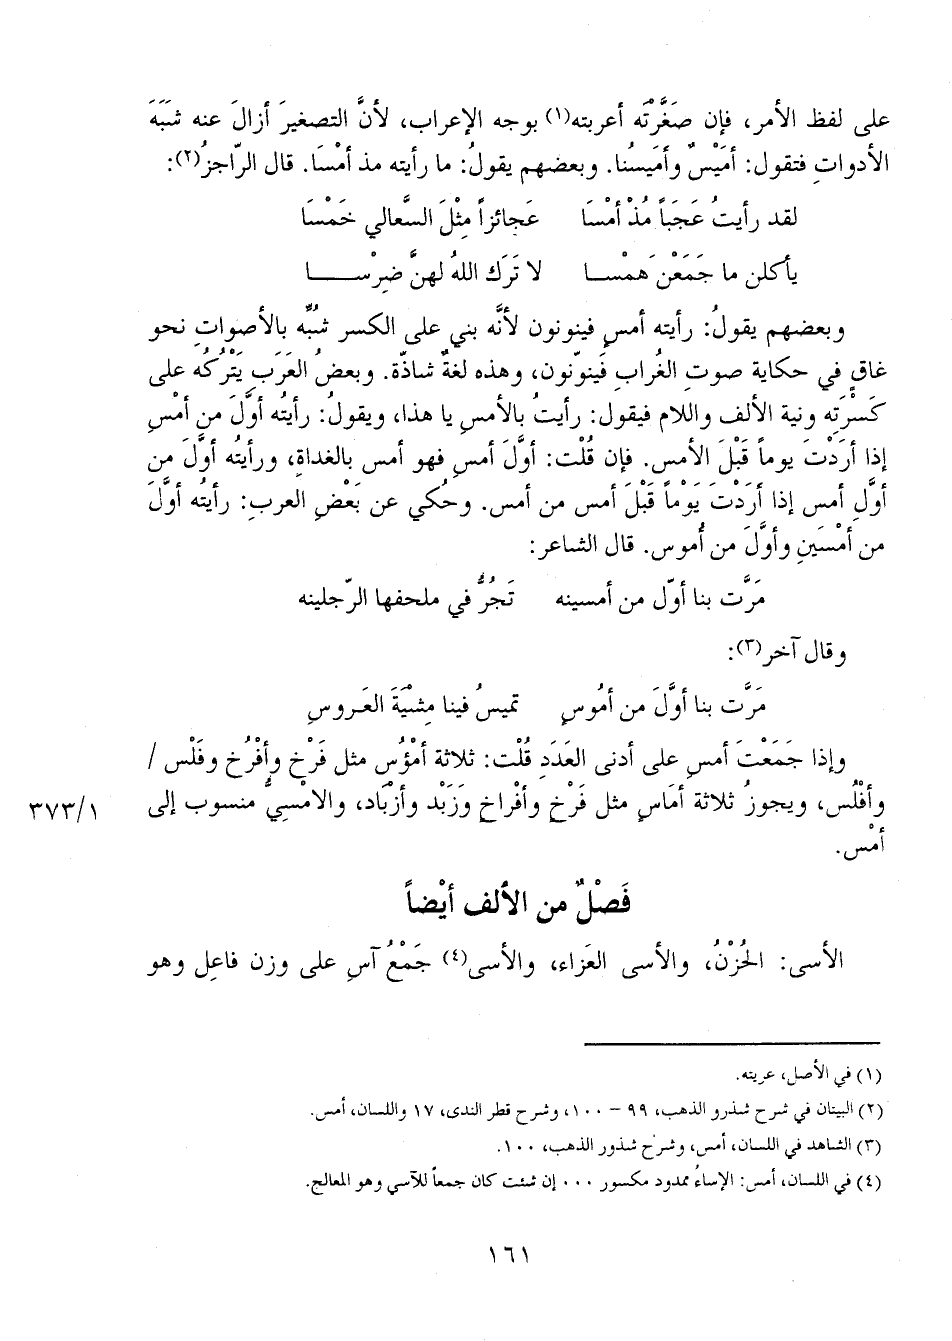 على لفظ الأمر، فإن صَغَّرْتَه أعربته(١) بوجه الإعراب، لأنَّ التصغيرَ أزالَ عنه شَبَهَ
الأدواتِ فتقول: أمَيْسٌ وأمَيسُنا. وبعضهم يقولُ: ما رأيته مذ أمْسَا. قال الرّاجزُ(٢):
لقد رأيتُ عَجَباً مُذْ أمْسَا عَجائزاً مِثْلَ السَّعالي خَمْسَا
يأكلن ما جَمَعْن َهمْسا لا تَرَك اللهُ لهنَّ ضِرْسا
وبعضهم يقولُ: رأيته أمسٍ فينونون لأنَّه بني على الكسر شُبِّه بالأصواتِ نحو
غاقٍ في حكاية صوتِ الغُراب فَينوّنون، وهذه لغةٌ شاذّة. وبعضُ العَرَبِ يَتْرُكُه على
كَسْرَتِه ونية الألف واللام فيقول: رأيتُ بالأمسِ يا هذا، ويقولُ: رأيتُه أوَّلَ من أمْسِ
إذا أرَدْتَ يوماً قَبْلَ الأمس. فإن قُلْت: أوَّلَ أمسِ فهو أمس بالغداةِ، ورأيتُه أوَّل من
أوَّلِ أمس إذا أرَدْتَ يَوْماً قَبْلَ أمس من أمس. وحُكي عن بَعْضِ العربِ: رأيتُه أوَّلَ
من أمْسَينِ وأوَّلَ من أُموس. قال الشاعر:
مَرَّت بنا أوّل من أمسينه تَجُرُّ في ملحفها الرّجلينه
وقال آخر(٣):
مَرَّت بنا أوَّلَ من أمُوسِ تميسُ فينا مِشْيَةَ العَروسِ
وإذا جَمَعْتَ أمسِ على أدنى العَدَدِ قُلْت: ثلاثة أمْؤُس مثل فَرْخ وأفْرُخ وفَلْس /
وأفْلُس، ويجوزُ ثلاثة أمَاسٍ مثل فَرْخٍ وأفْراخٍ وزَبْد وأزْبَاد، والامْسِيُّ منسوب إلى
٣٧٣/١
أمْس.
فَصْلٌ من الألف أيْضاً
الأسى: الحُزْنُ، والأسى العَزاء، والأسى(٤) جَمْعُ آسٍ على وزن فاعِلٍ وهو
(١) في الأصل، عربته.
(٢) البيتان في شرح شذرو الذهب، ٩٩ - ١٠٠، وشرح قطر الندى، ١٧ واللسان، أمس.
(٣) الشاهد في اللسان، أمس، وشرح شذور الذهب، ١٠٠.
(٤) في اللسان، أمس: الإساءُ ممدود مكسور ٠٠٠ إن شئت كان جمعاً للآسي وهو المعالج.
١٦١